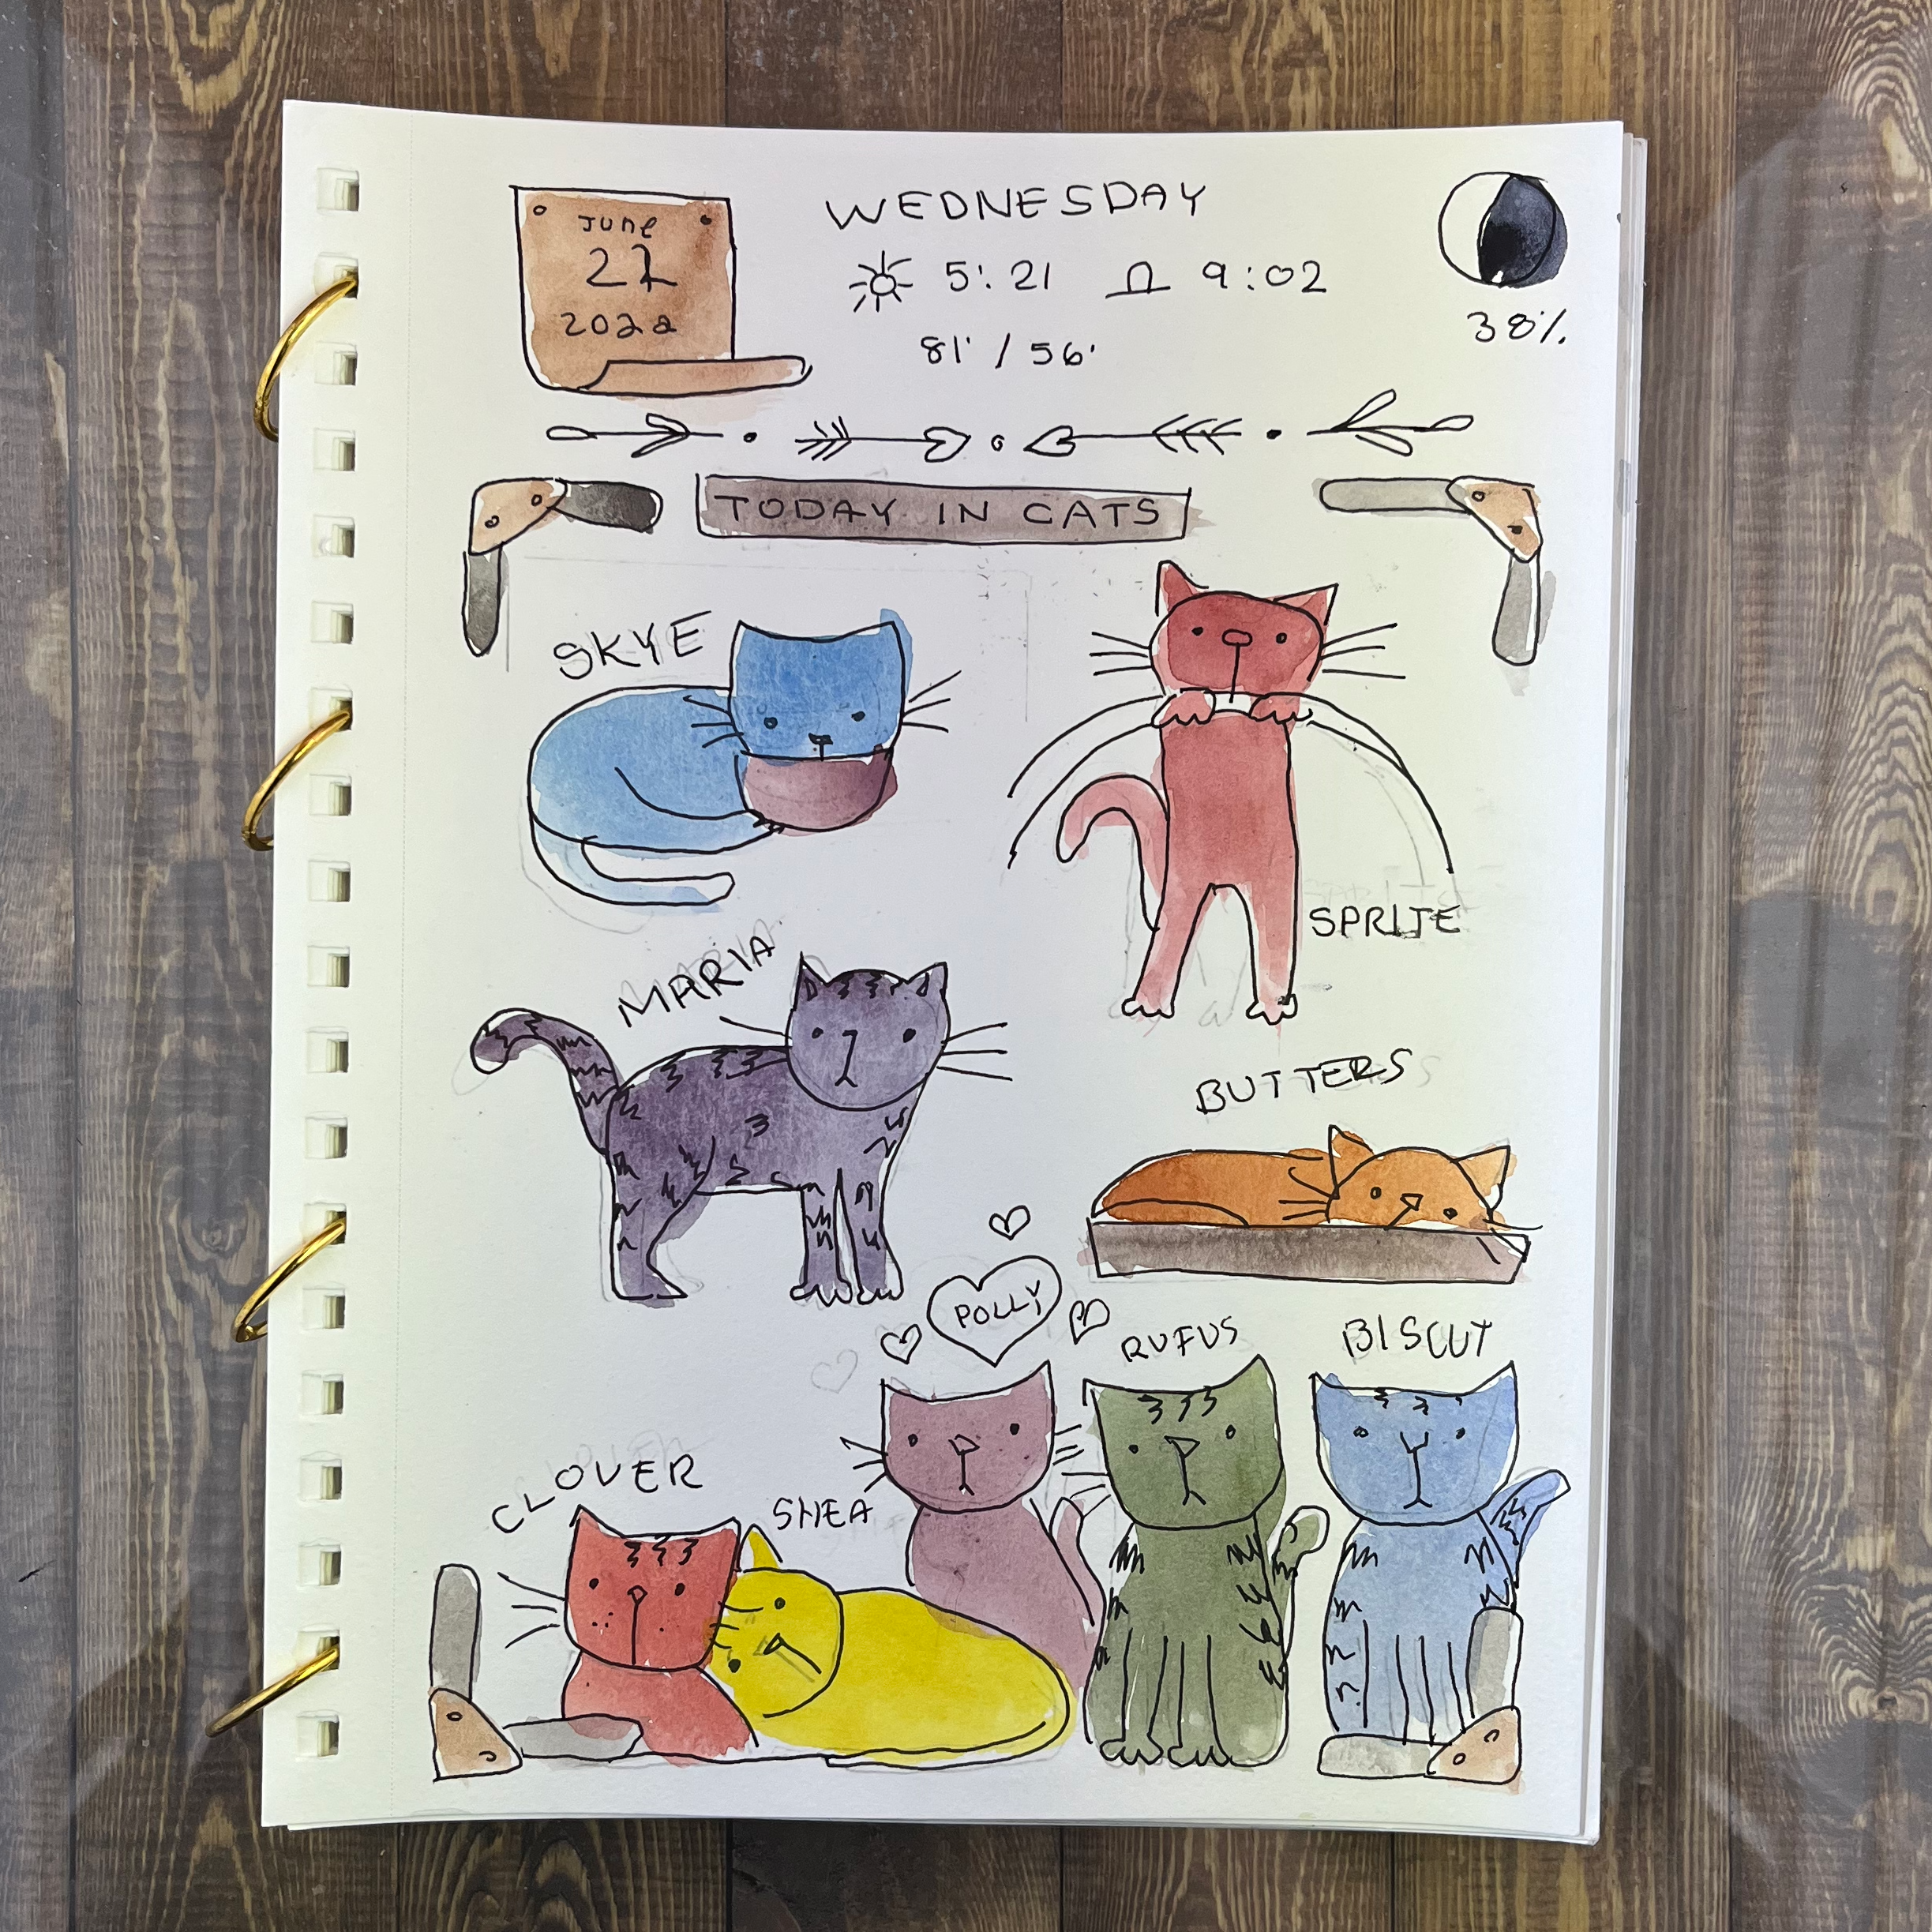 June
22
2022
WEDNESDAY
5:21 9:02
81° / 56°
38%
TODAY IN CATS
SKYE
SPRITE
MARIA
BUTTERS
POLLY
RUFUS
BISCUT
CLOVER
SHEA